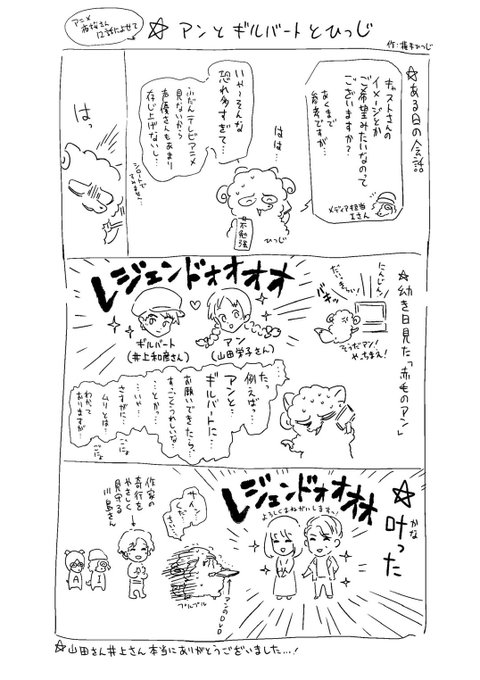 アニメ
夜桜さん
12話によせて
☆アンとギルバートとひつじ
☆ある日の会話
キャストさんの
イメージとか
ご希望みたいなのって
ございますか?
あくまで
参考ですが…
メディア担当
Iさん
はは…
ひつじ
不勉強
いやーそんな
恐れ多すぎて…
ふだんテレビアニメ
見ないから
声優さんもあまり
存じ上げないし…
はっ
☆幼き日見た「赤毛のアン」
にんじん!
だいっきらい!
バキッ
そうだアン!
やっちまえ!
レジェンドォオオオ
アン
(山田栄子さん)
ギルバート
(井上和彦さん)
たっ…
例えばっ…
アンと…
ギルバートに…
お願いできたら…
すっごくうれしいな…
…とか…
…いや…
さすがに…
ムリとは…
わかって
おりますが…
☆叶った
かな
レジェンドォオオオ
よろしくおねがいします〜!
サイン…
ください…
アンのDVD
プルプル
作家の
奇行を
やさしく
見守る
川島さん
A
I
☆山田さん井上さん本当にありがとうございました…!